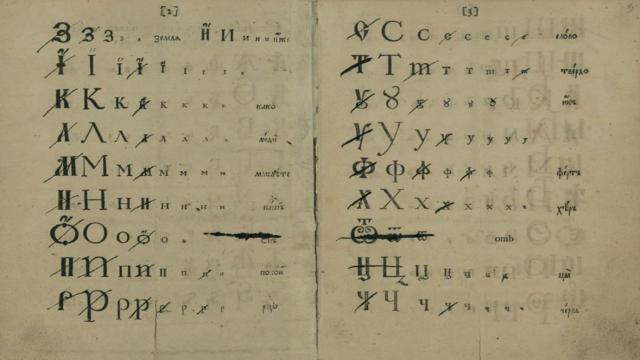 [2]
З З З з з з земля Й И и и и иже
Ї Ї ї ї ї ї ї ї ї
К К к к к к к к како
Л Л л л л л л л люди
М М м м м м м м мыслѣте
Н Н н н н н н н нашъ
О О о о о о онъ
П П п п п п п п покой
Р Р р р р р р р рцы
[3]
С С с с с с с с слово
Т Т т т т т т т твердо
Ꙋ ꙋ ꙋ ꙋ ꙋ ꙋ ꙋ икъ
У У у у у у у у
Ф ф ф ф ф ф ф фертъ
Х Х х х х х х х хѣръ
Ѿ ѿ ѿ отъ
Ц Ц ц ц ц ц ц цы
Ч Ч ч ч ч ч ч червь